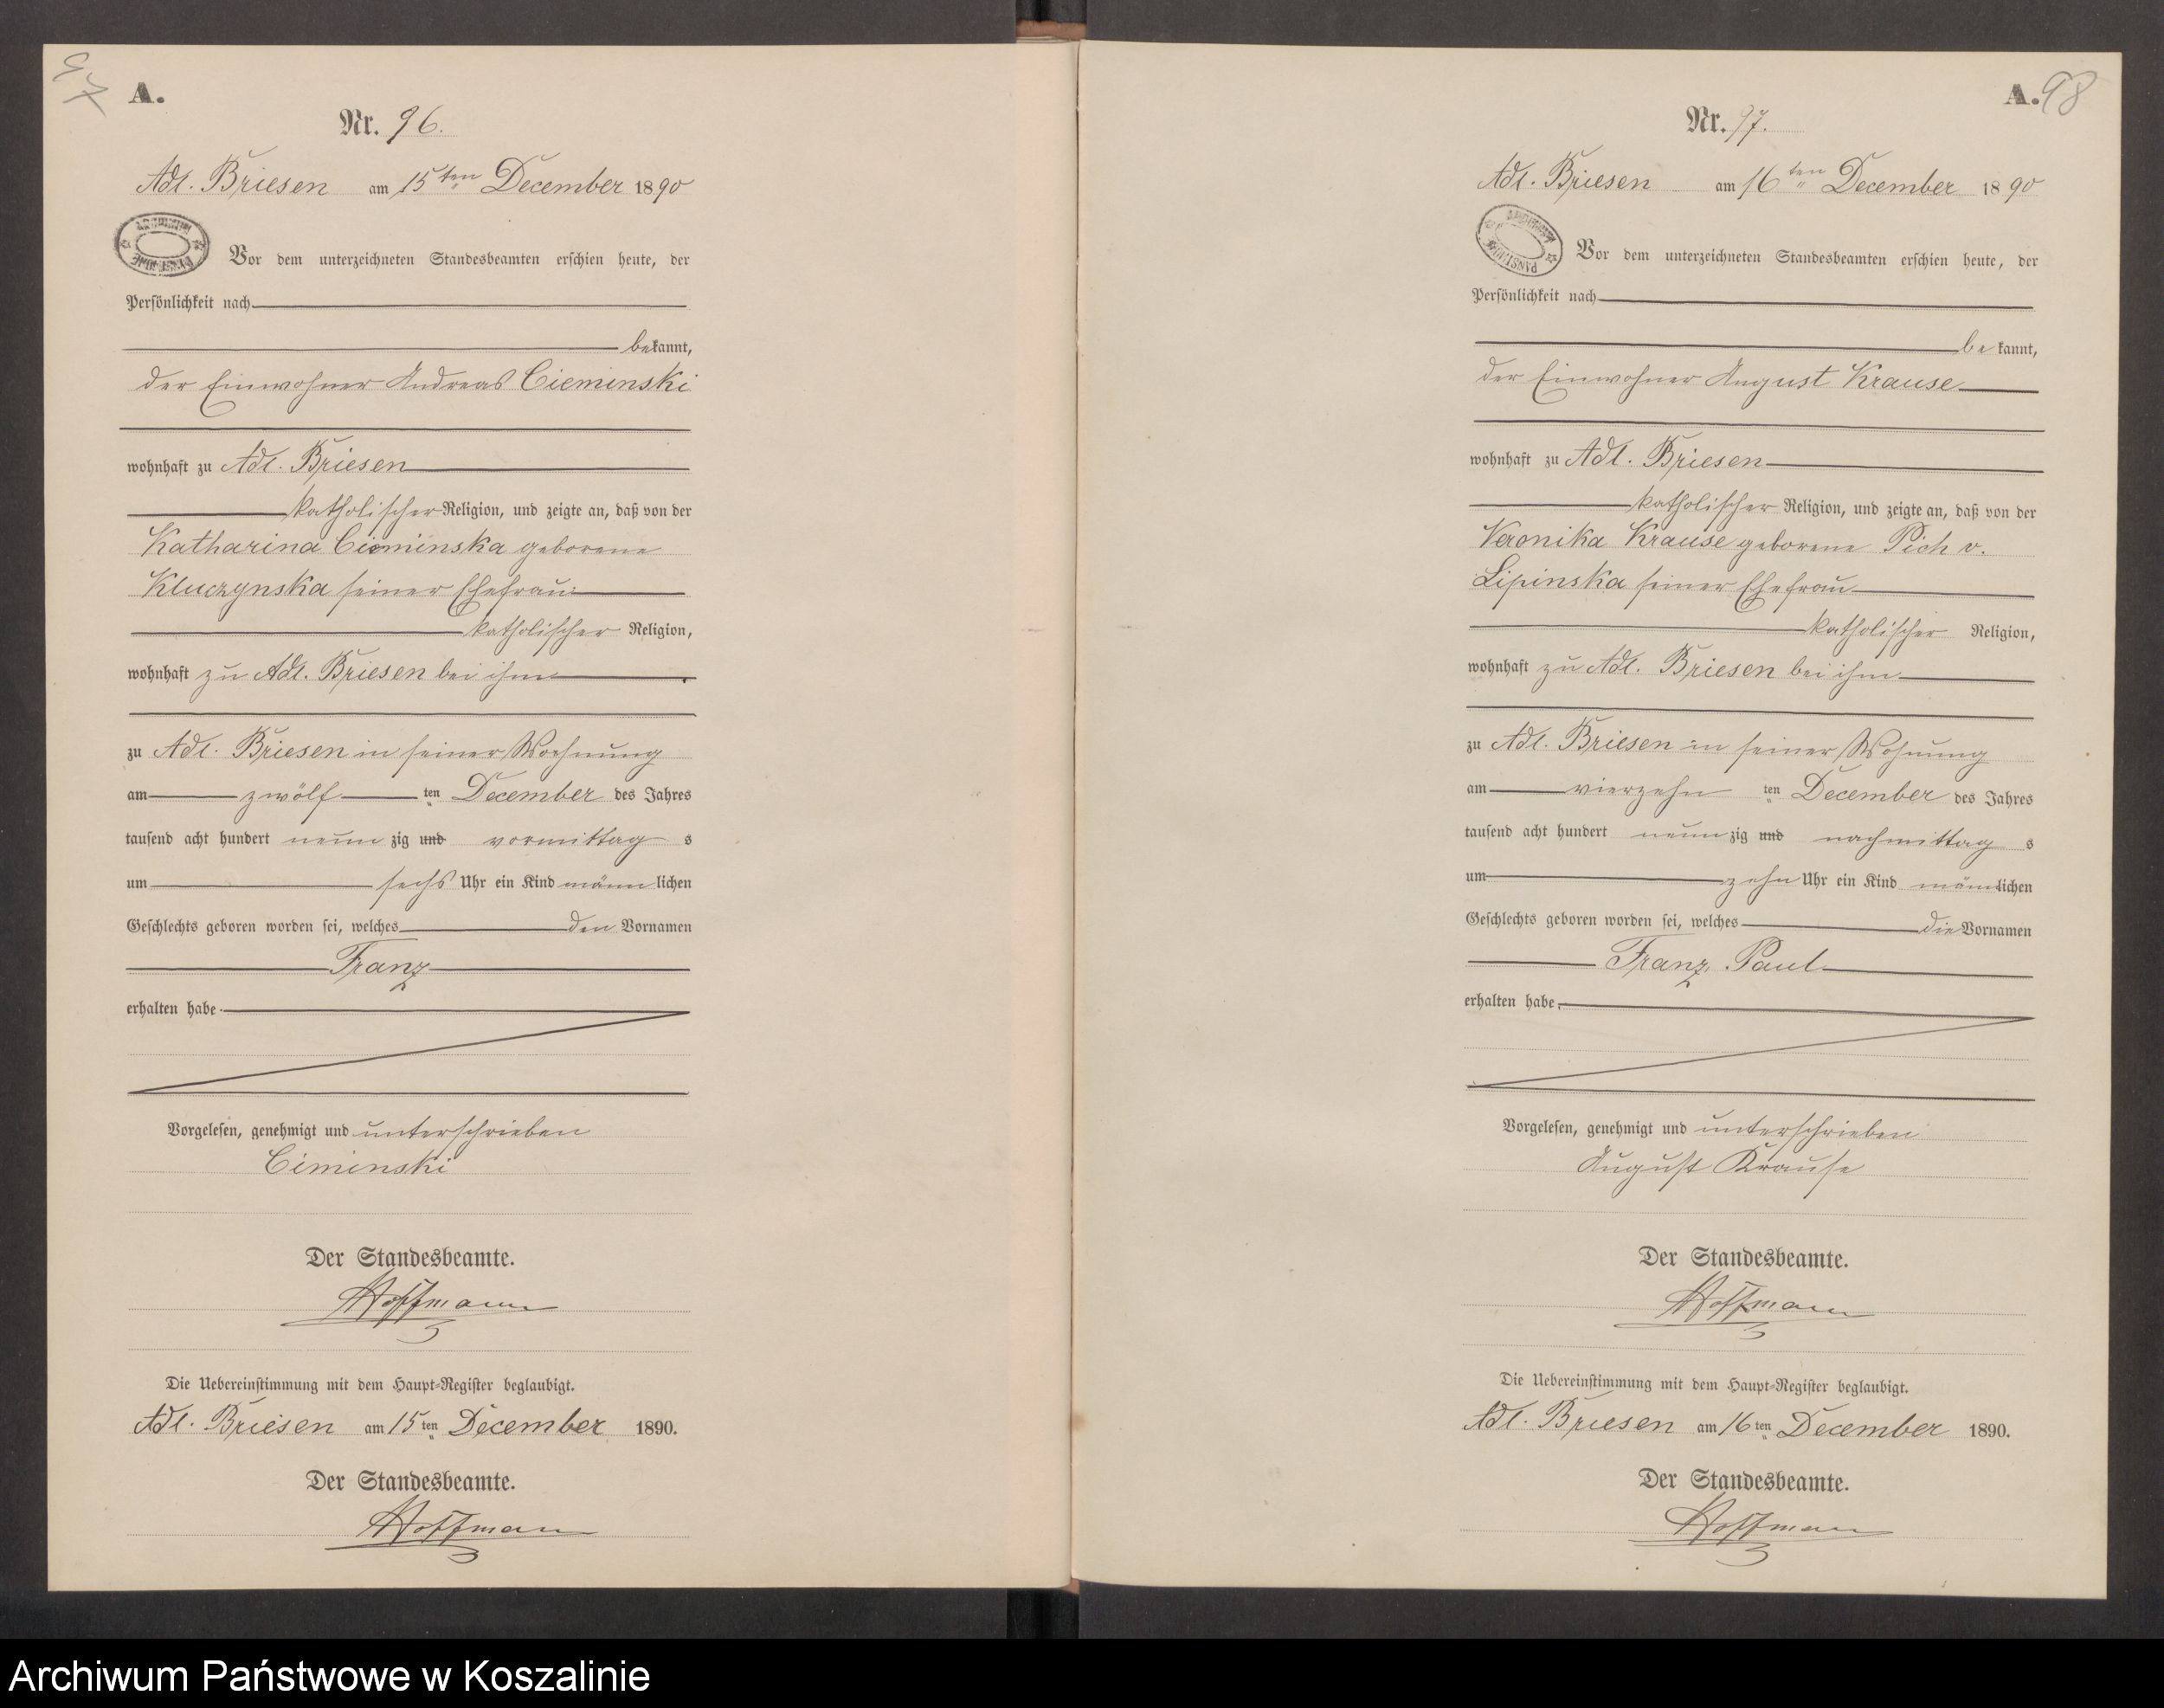 97
A.
Nr. 96.
Adl. Briesen am 15ten December 1890
ARCHIWUM PAŃSTWOWE
Vor dem unterzeichneten Standesbeamten erschien heute, der
Persönlichkeit nach
bekannt,
der Einwohner Andreas Cieminski
wohnhaft zu Adl. Briesen
katholischer Religion, und zeigte an, daß von der
Katharina Cieminska geborene
Kluczynska seiner Ehefrau
katholischer Religion,
wohnhaft zu Adl. Briesen bei ihm
zu Adl. Briesen in seiner Wohnung
am zwölf ten December des Jahres
tausend acht hundert neun zig und vormittag s
um sechs Uhr ein Kind männlichen
Geschlechts geboren worden sei, welches den Vornamen
Franz
erhalten habe
Vorgelesen, genehmigt und unterschrieben
Ciminski
Der Standesbeamte.
Hoffmann
Die Uebereinstimmung mit dem Haupt-Register beglaubigt.
Adl. Briesen am 15ten December 1890.
Der Standesbeamte.
Hoffmann
A. 98
Nr. 97.
Adl. Briesen am 16ten December 1890
ARCHIWUM PAŃSTWOWE
Vor dem unterzeichneten Standesbeamten erschien heute, der
Persönlichkeit nach
bekannt,
der Einwohner August Krause
wohnhaft zu Adl. Briesen
katholischer Religion, und zeigte an, daß von der
Veronika Krause geborene Pich v.
Lipinska seiner Ehefrau
katholischer Religion,
wohnhaft zu Adl. Briesen bei ihm
zu Adl. Briesen in seiner Wohnung
am vierzehn ten December des Jahres
tausend acht hundert neun zig und nachmittag s
um zehn Uhr ein Kind männlichen
Geschlechts geboren worden sei, welches die Vornamen
Franz, Paul
erhalten habe,
Vorgelesen, genehmigt und unterschrieben
August Krause
Der Standesbeamte.
Hoffmann
Die Uebereinstimmung mit dem Haupt-Register beglaubigt.
Adl. Briesen am 16ten December 1890.
Der Standesbeamte.
Hoffmann
Archiwum Państwowe w Koszalinie